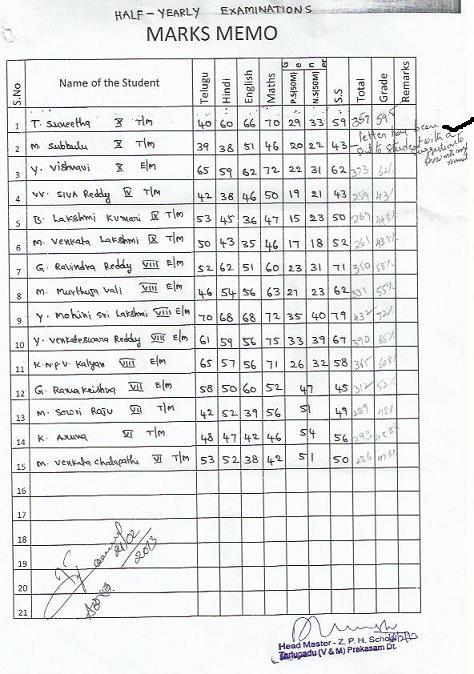 HALF-YEARLY EXAMINATIONS
MARKS MEMO
S.No Name of the Student Telugu Hindi English Maths Gener P.S(50M) N.S(50M) S.S Total Grade Remarks
1 T. Suneetha X T/M 40 60 66 70 29 33 59 357
2 M. Subbulu X T/M 39 38 51 46 20 22 43
letter has been
sent to student with a
suggestion to
3 Y. Vishnavi X E/M 65 59 62 72 22 31 62 373
4 VV. Siva Reddy IX T/M 42 38 46 50 19 21 43 259
5 B. Lakshmi Kumari IX T/M 53 45 36 47 15 23 50 269
6 M. Venkata Lakshmi IX T/M 50 43 35 46 17 18 52 261
7 G. Ravindra Reddy VIII E/M 52 62 51 60 23 31 71 350 58%
8 M. Murthuja Vali VIII E/M 46 54 56 63 27 23 62 331 55%
9 Y. Mohini Sri Lakshmi VIII E/M 70 68 68 72 35 40 79 432 72%
10 Y. Venkateswara Reddy VIII E/M 61 59 56 75 33 39 67 390 65%
11 K.N.P.V. Kalyan VIII E/M 65 57 56 71 26 32 58 365
12 G. Ramakrishna VII E/M 58 50 60 52 47 45 312 52%
13 M. Sowri Raju VII T/M 42 52 39 56 51 49 289
14 K. Aruna VI T/M 48 47 42 46 54 56 293
15 M. Venkata Chalapathi VI T/M 53 52 38 42 51 50 286
16
17
18
19
20
21
21/02
2013
Head Master - Z. P. H. School
Tarlupadu (V & M) Prakasam Dt.